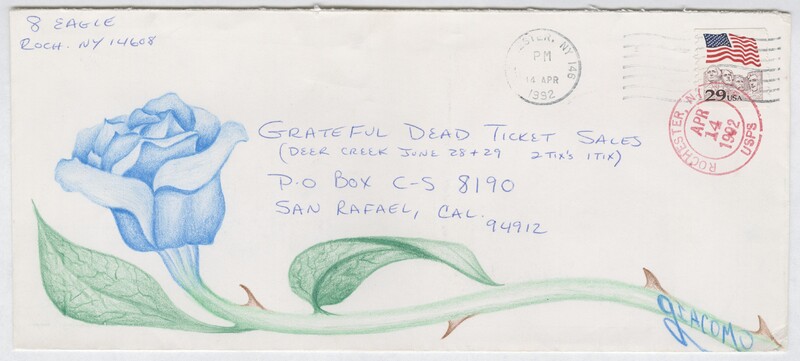 8 EAGLE
ROCH. NY 14608
ESTER, NY 146
PM
14 APR
1992
29 USA
ROCHESTER, N
APR
14
1992
USPS
GRATEFUL DEAD TICKET SALES
(DEER CREEK JUNE 28 + 29 2 TIX'S 1 TIX)
P.O BOX C-S 8190
SAN RAFAEL, CAL.
94912
GIACOMO